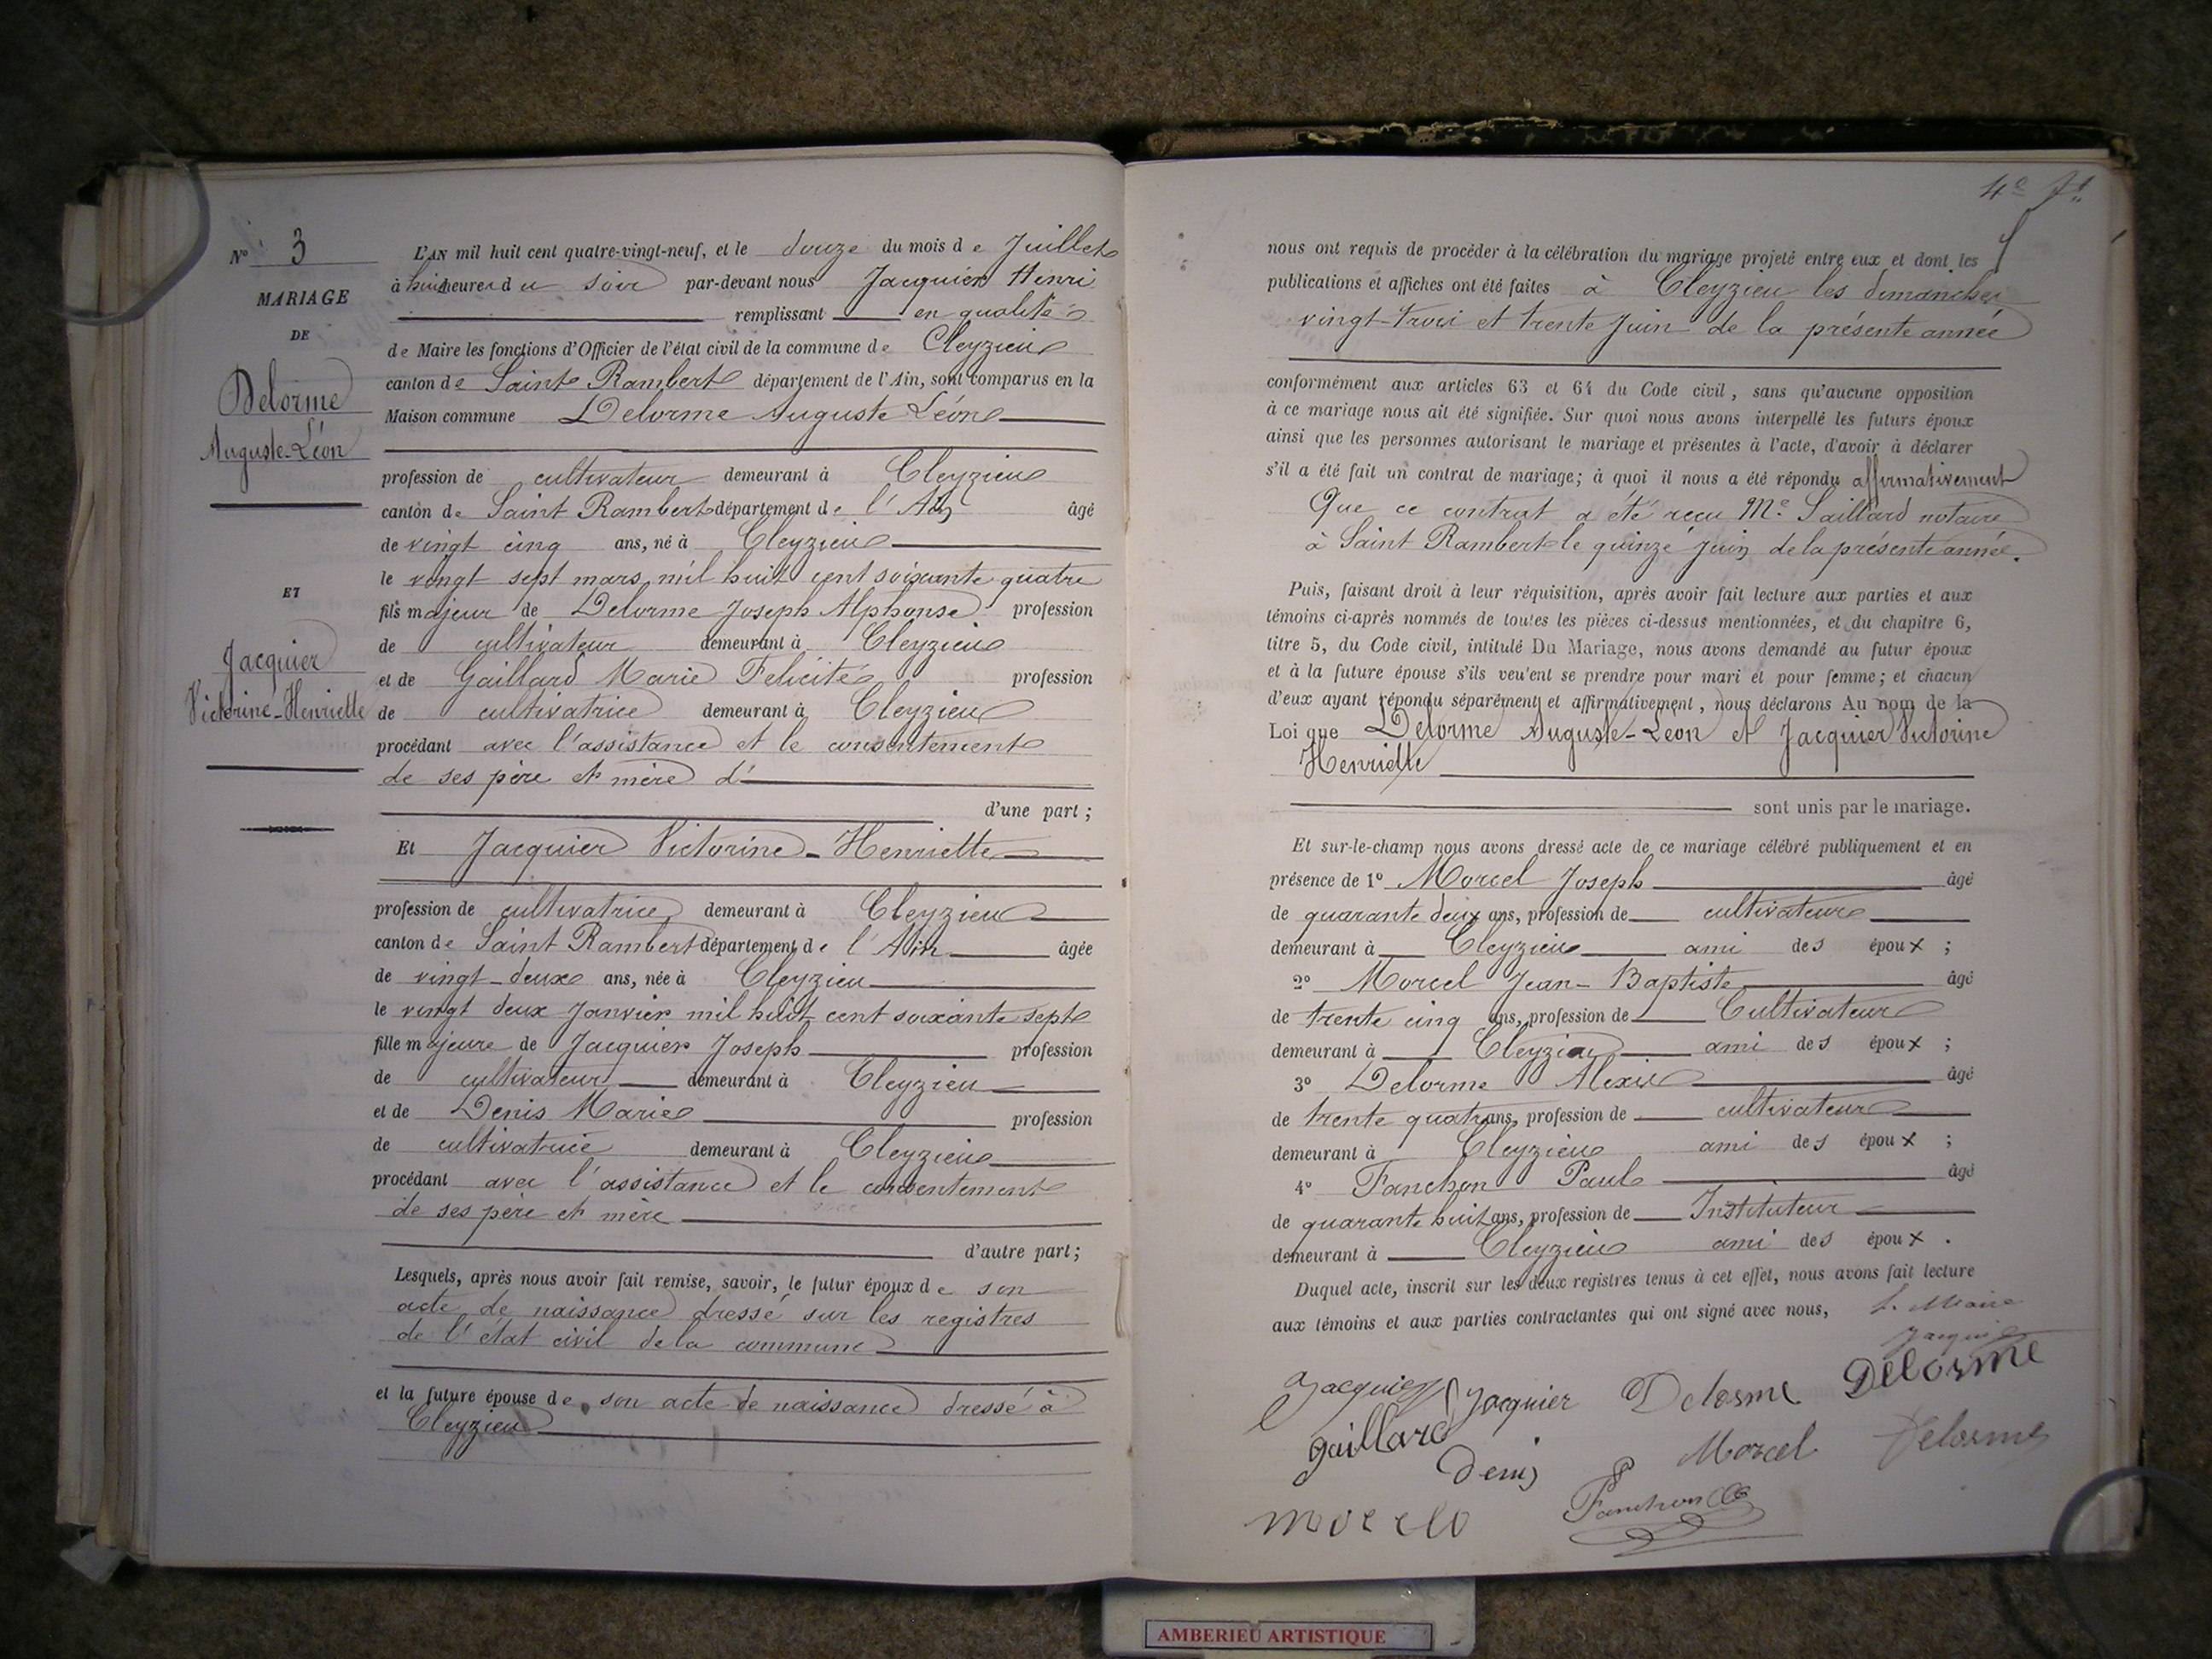 N° 3
MARIAGE
DE
Delorme
Auguste-Léon
ET
Jacquier
Victorine-Henriette
L'AN mil huit cent quatre-vingt-neuf, et le douze du mois de Juillet
à huit heures du soir par-devant nous Jacquier Henri
remplissant en qualité
de Maire les fonctions d'Officier de l'état civil de la commune de Cleyzieu
canton de Saint Rambert département de l'Ain, sont comparus en la
Maison commune Delorme Auguste Léon
profession de cultivateur demeurant à Cleyzieu
canton de Saint Rambert département de l'Ain âgé
de vingt cinq ans, né à Cleyzieu
le vingt sept mars mil huit cent soixante quatre
fils majeur de Delorme Joseph Alphonse profession
de cultivateur demeurant à Cleyzieu
et de Gaillard Marie Felicité profession
de cultivatrice demeurant à Cleyzieu
procédant avec l'assistance et le consentement
de ses père et mère d'
d'une part ;
Et Jacquier Victorine-Henriette
profession de cultivatrice demeurant à Cleyzieu
canton de Saint Rambert département de l'Ain âgée
de vingt-deux ans, née à Cleyzieu
le vingt deux Janvier mil huit cent soixante sept
fille majeure de Jacquier Joseph profession
de cultivateur demeurant à Cleyzieu
et de Denis Marie profession
de cultivatrice demeurant à Cleyzieu
procédant avec l'assistance et le consentement
de ses père et mère
d'autre part ;
Lesquels, après nous avoir fait remise, savoir, le futur époux de son
acte de naissance dressé sur les registres
de l'état civil de la commune
et la future épouse de son acte de naissance dressé à
Cleyzieu
4e
nous ont requis de procéder à la célébration du mariage projeté entre eux et dont les
publications et affiches ont été faites à Cleyzieu les dimanches
vingt-trois et trente Juin de la présente année
conformément aux articles 63 et 64 du Code civil, sans qu'aucune opposition
à ce mariage nous ait été signifiée. Sur quoi nous avons interpellé les futurs époux
ainsi que les personnes autorisant le mariage et présentes à l'acte, d'avoir à déclarer
s'il a été fait un contrat de mariage; à quoi il nous a été répondu affirmativement
Que ce contrat a été reçu Me Saillard notaire
à Saint Rambert le quinze Juin de la présente année.
Puis, faisant droit à leur réquisition, après avoir fait lecture aux parties et aux
témoins ci-après nommés de toutes les pièces ci-dessus mentionnées, et du chapitre 6,
titre 5, du Code civil, intitulé Du Mariage, nous avons demandé au futur époux
et à la future épouse s'ils veulent se prendre pour mari et pour femme; et chacun
d'eux ayant répondu séparément et affirmativement, nous déclarons Au nom de la
Loi que Delorme Auguste-Léon et Jacquier Victorine
Henriette
sont unis par le mariage.
Et sur-le-champ nous avons dressé acte de ce mariage célébré publiquement et en
présence de 1° Morcel Joseph âgé
de quarante deux ans, profession de cultivateur
demeurant à Cleyzieu ami des époux ;
2° Morcel Jean-Baptiste âgé
de trente cinq ans, profession de Cultivateur
demeurant à Cleyzieu ami des époux ;
3° Delorme Alexis âgé
de trente quatre ans, profession de cultivateur
demeurant à Cleyzieu ami des époux ;
4° Fanchon Paul âgé
de quarante huit ans, profession de Instituteur
demeurant à Cleyzieu ami des époux .
Duquel acte, inscrit sur les deux registres tenus à cet effet, nous avons fait lecture
aux témoins et aux parties contractantes qui ont signé avec nous, L. Maire
Jacquier
Jacquier Jacquier Delorme Delorme
Gaillard Denis Morcel Delorme
P Fanchon
AMBERIEU ARTISTIQUE